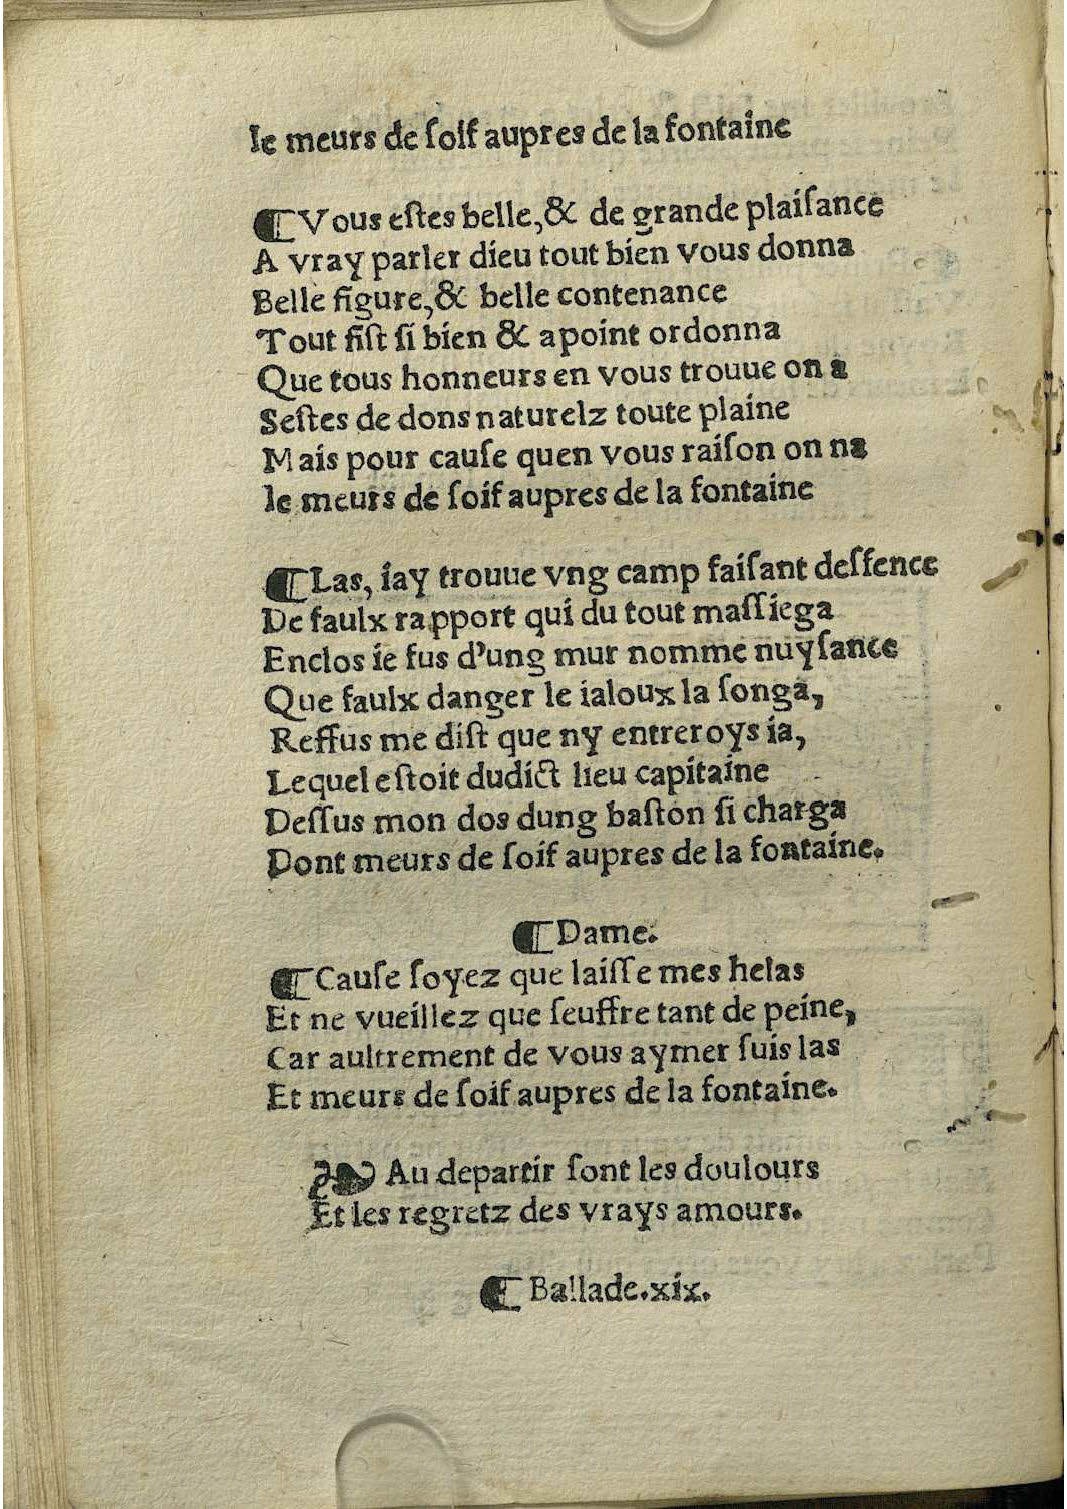 Ie meurs de ſoif aupres de la fontaine
¶ Vous eſtes belle, & de grande plaiſance
A vray parler dieu tout bien vous donna
Belle figure, & belle contenance
Tout fiſt ſi bien & apoint ordonna
Que tous honneurs en vous trouue on a
Seſtes de dons naturelz toute plaine
Mais pour cauſe quen vous raiſon on na
Ie meurs de ſoif aupres de la fontaine
¶ Las, iay trouue vng camp faiſant deſfence
De faulx rapport qui du tout maſſiega
Enclos ie fus d'ung mur nomme nuyſance
Que faulx danger le ialoux la ſonga,
Reffus me diſt que ny entreroys ia,
Lequel eſtoit dudict lieu capitaine
Deſſus mon dos dung baſton ſi charga
Dont meurs de ſoif aupres de la fontaine.
¶ Dame.
¶ Cauſe ſoyez que laiſſe mes helas
Et ne vueillez que ſeuffre tant de peine,
Car aultrement de vous aymer ſuis las
Et meurs de ſoif aupres de la fontaine.
❧ Au departir ſont les doulours
Et les regretz des vrays amours.
¶ Ballade.xix.